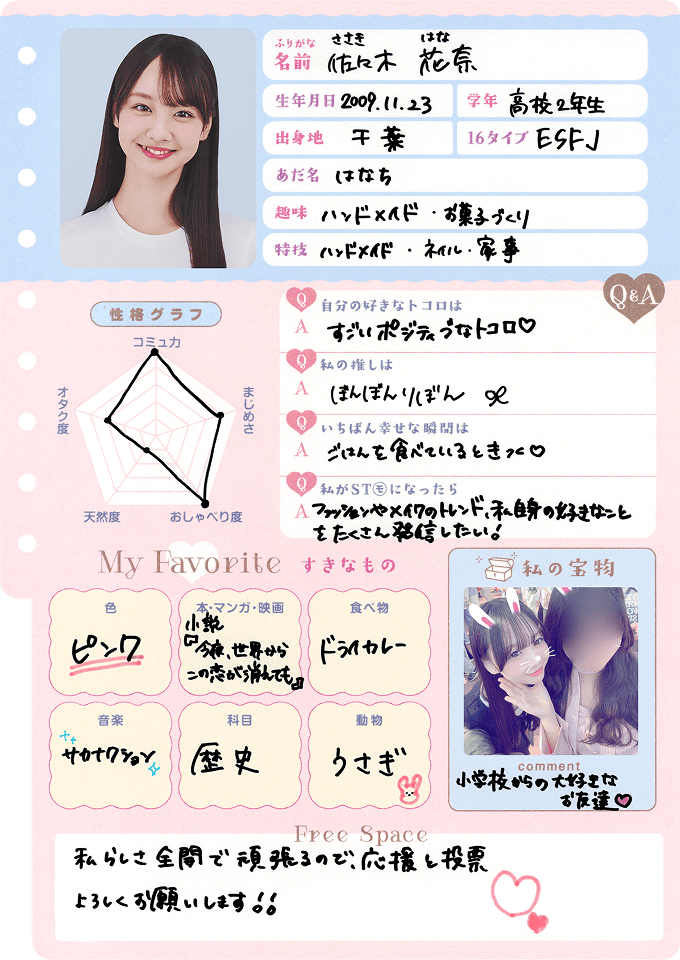 ふりがな ささき はな
名前 佐々木 花奈
生年月日 2009.11.23 学年 高校2年生
出身地 千葉 16タイプ ESFJ
あだ名 はなち
趣味 ハンドメイド・お菓子づくり
特技 ハンドメイド・ネイル・家事
Q&A
性格グラフ
コミュ力
まじめさ
おしゃべり度
天然度
オタク度
Q 自分の好きなトコロは
A すごいポジティブなトコロ♡
Q 私の推しは
A ぽんぽんりぼん
Q いちばん幸せな瞬間は
A ごはんを食べているときっ♡
Q 私がST㋲になったら
A ファッションやメイクのトレンド、私自身の好きなこと
をたくさん発信したい!
My Favorite すきなもの
色
ピンク
本・マンガ・映画
小説
『今夜、世界から
この恋が消えても』
食べ物
ドライカレー
音楽
サカナクション
科目
歴史
動物
うさぎ
私の宝物
comment
小学校からの大好きな
お友達♡
Free Space
私らしさ全開で頑張るので、応援と投票
よろしくお願いします!!